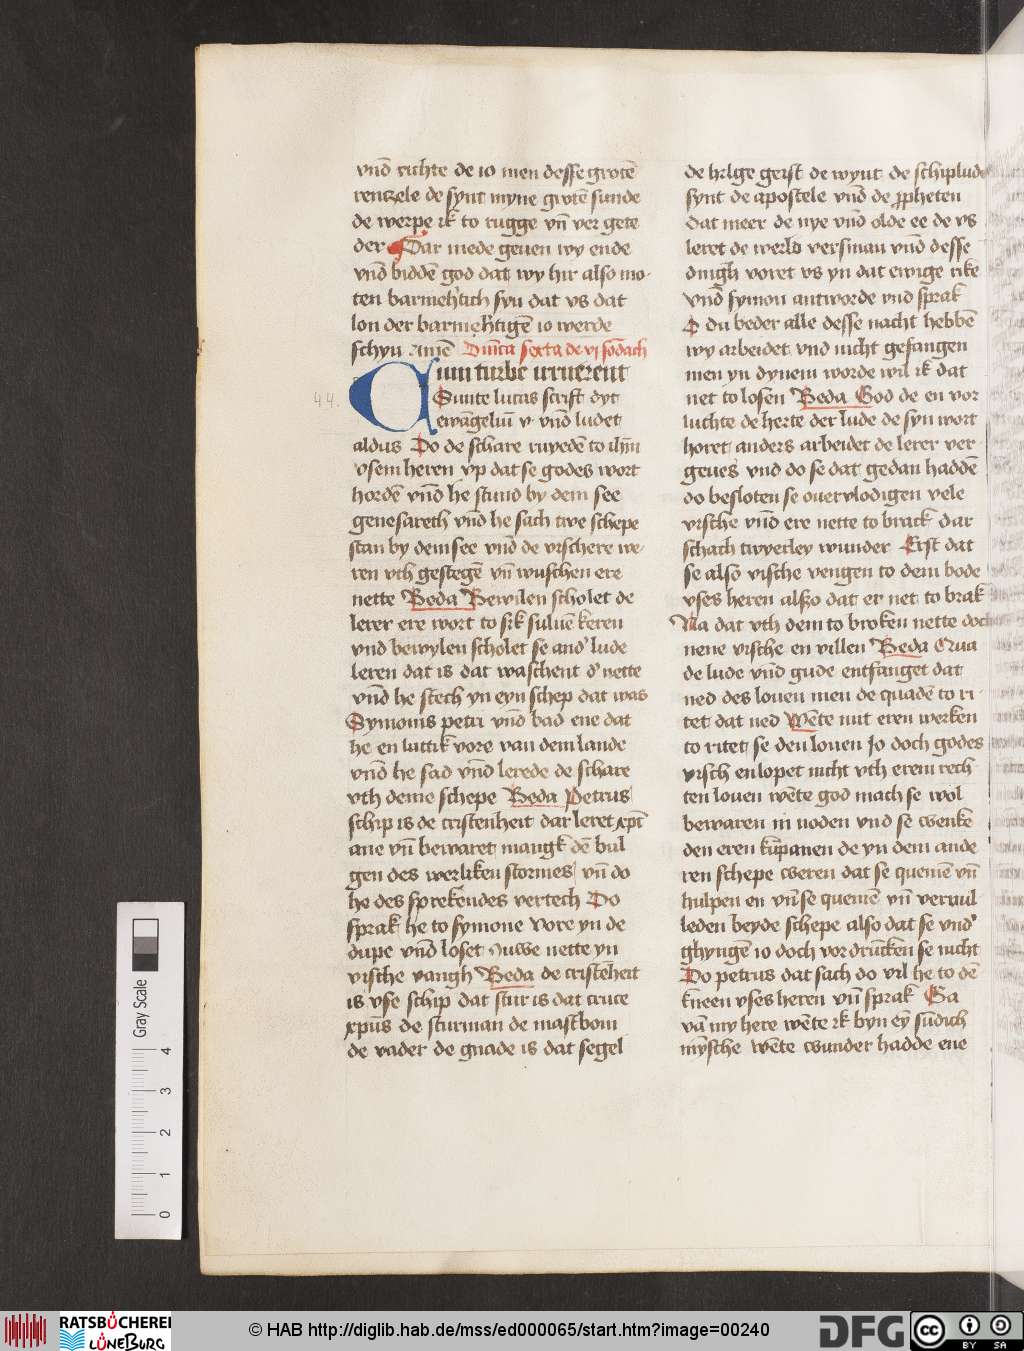 vn̄d richte de io men desse grotē
rentzele de synt myne grotē sunde
de werpe ik to rugge vn̄ ver gete
der Dar mede geuen wy ende
vn̄d biddē god dat wy hir also mo-
ten barmehͭich syn dat vs dat
lon der barmehͭigē io werde
schyn Amē Dūica sexta de vi sōdach
Cum turbe irruerent
Sunte lucas scrift dyt
ewāgeliū v vn̄d ludet
aldus Do de schare ruyedē to ihm̄
vsem heren vp dat se godes wort
hordē vn̄d he stund by dem see
genesareth vn̄d he sach twe schepe
stan by dem see vn̄d de vrschere we-
ren vth gestegē vn̄ wuschen ere
nette Beda Bewilen scholet de
lerer ere wort to sik suluē keren
vnd bewylen scholet se and' lude
leren dat is dat waschent d' nette
vn̄d he stech yn eyn schep dat was
Symonis petri vn̄d bad ene dat
he en luttik vore van dem lande
vn̄d he sad vn̄d lerede de schare
vth deme schepe Beda Petrus
schip is de cristenheit dar leret xp̄c
ane vn̄ bewaret mangk dē bul
gen des werliken stormes vn̄ do
he des sprekendes vertech Do
sprak he to symone Vore yn de
dupe vn̄d loset Juwe nette yn
vische vangh Beda de cristēheit
is vse schip dat stur is dat cruce
xp̄us de sturman de mastbom
de vader de gnade is dat segel
de hilge geist de wynt de schiplude
synt de apostele vn̄d de ꝓpheten
dat meer de nye vn̄d olde ee de vs
leret de werld versman vn̄d desse
dingh voret vs yn dat ewige rike
vn̄d symon antworde vnd sprak
O du beder alle desse nacht hebbē
wy arbeidet vnd nicht gefangen
men yn dynem worde wil ik dat
net to losen Beda God de en vor
luchte de herte der lude de syn wort
horet anders arbeidet de lerer ver-
geues vnd do se dat gedan haddē
do besloten se ouervlodigen vele
vische vn̄d ere nette to brack dar
schach twyerley wunder Erst dat
se also vische vengen to dem bode
vses heren alszo dat er net to brak
Na dat vth dem to broken nette doch
nene vische en villen Beda Qua
de lude vn̄d gude entfanget dat
ned des louen men de quadē to ri-
tet dat ned Wēte mit eren werken
to ritet se den louen Jo doch godes
visch enlopet nicht vth erem rech-
ten louen wēte god mach se wol
bewaren in noden vnd se wenkē
den eren kūpanen de yn dem ande
ren schepe weren dat se quemē vn̄
hulpen en vn̄ se quemē vn̄ vervul-
leden beyde schepe also dat se vnd'
ghyngē io doch vordrūcken se nicht
Do petrus dat sach do vil he to dē
kneen vses heren vn̄ sprak Ga
vā my here wēte ik byn eȳ sūdich
mȳsche wēte wunder hadde ene
44.
Gray Scale
0 1 2 3 4
RATSBÜCHEREI
LÜNEBURG
© HAB http://diglib.hab.de/mss/ed000065/start.htm?image=00240
DFG
CC BY SA